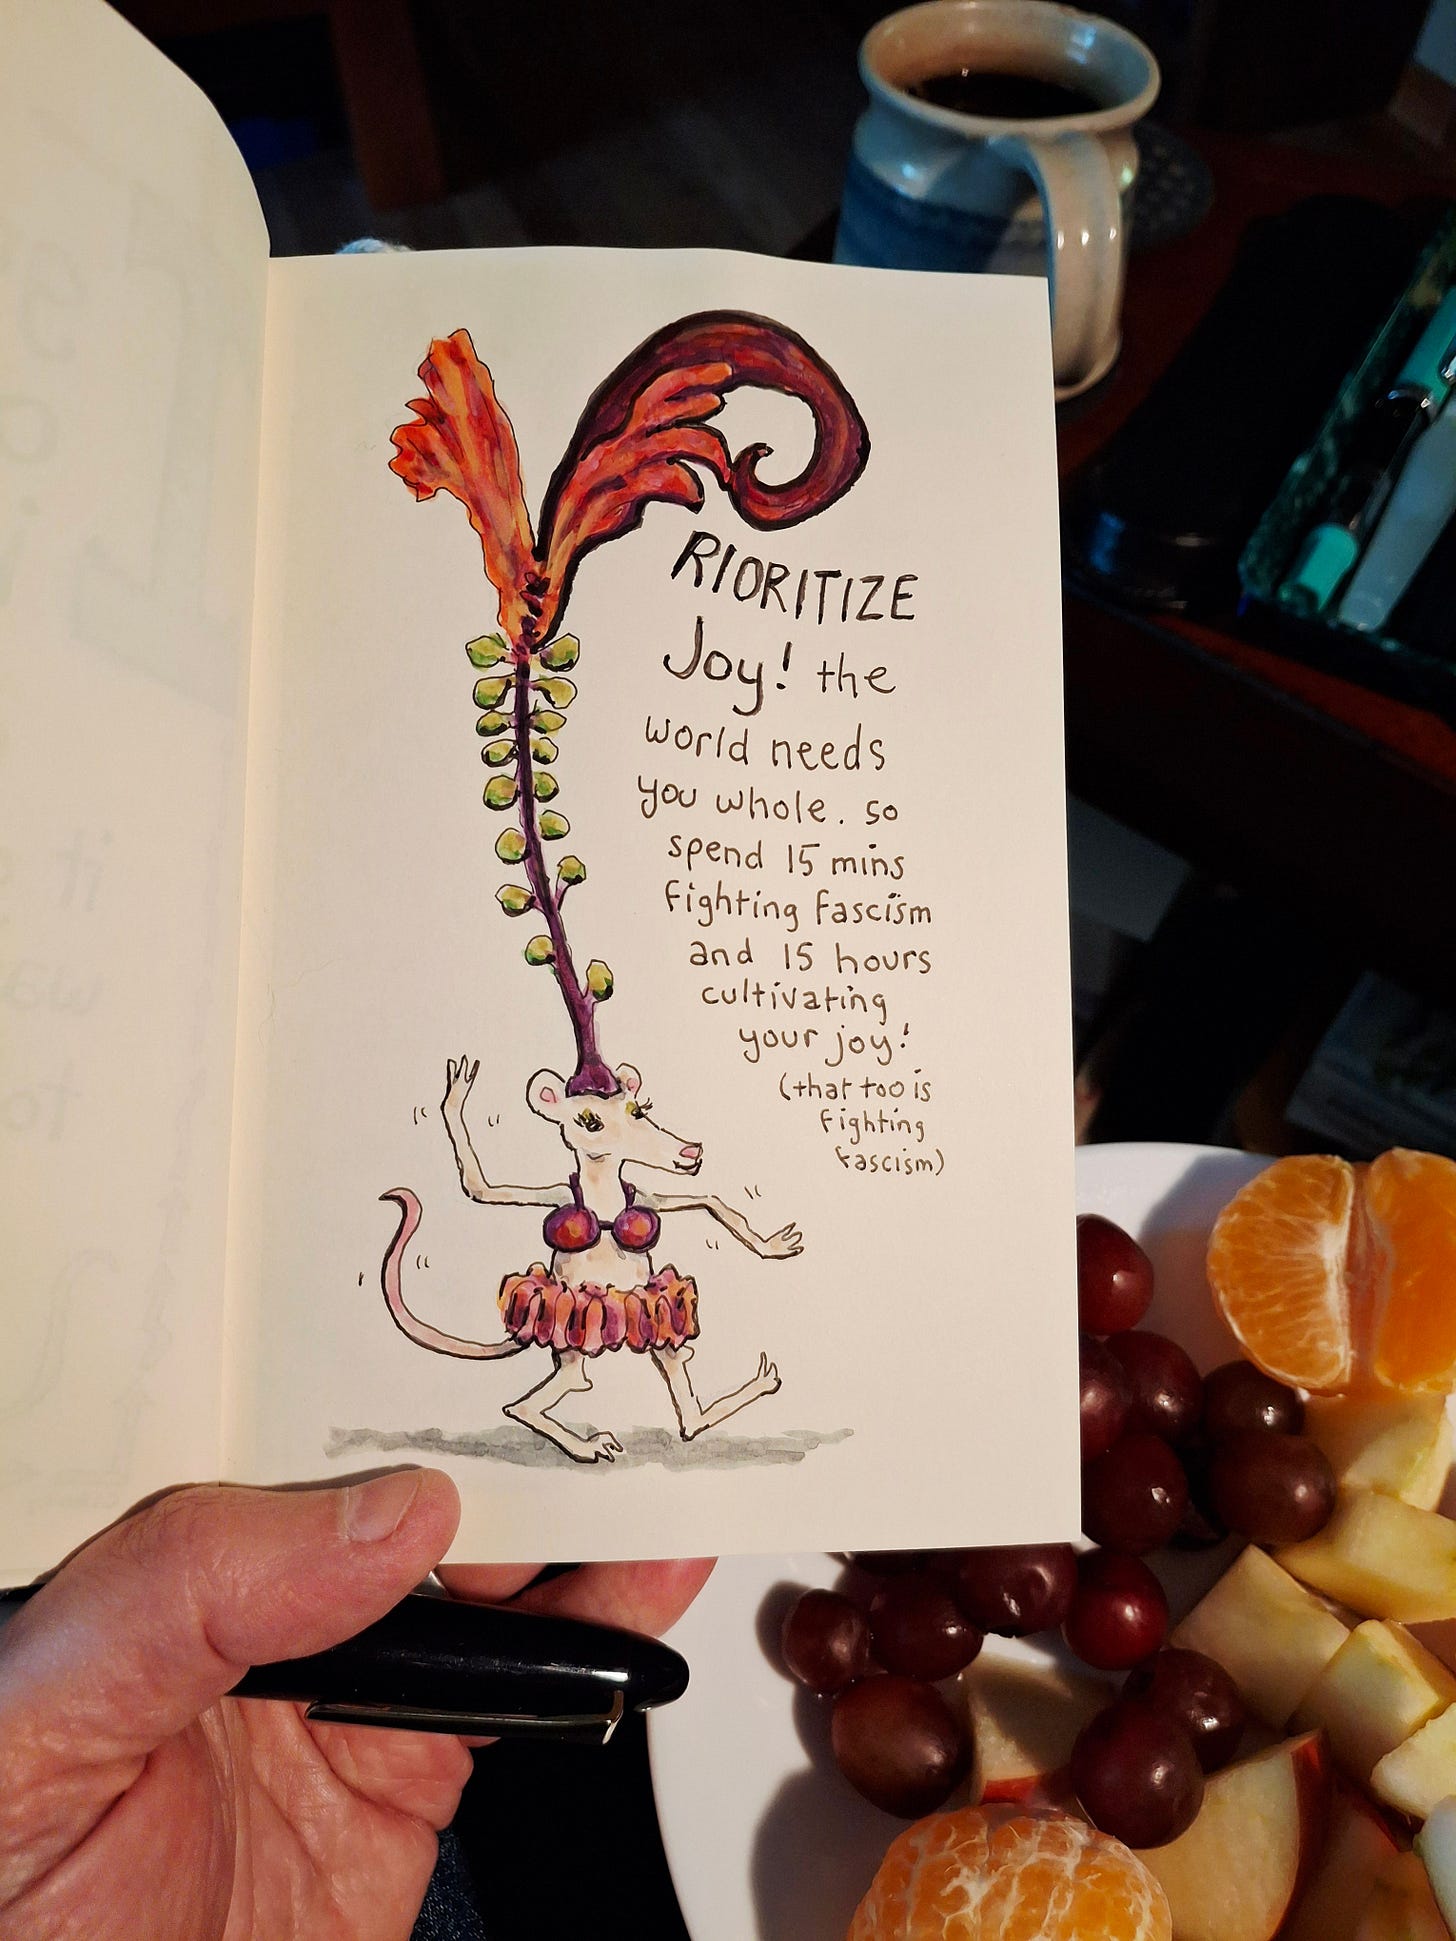 PRIORITIZE
Joy! the
world needs
you whole. so
spend 15 mins
fighting fascism
and 15 hours
cultivating
your joy!
(that too is
fighting
fascism)